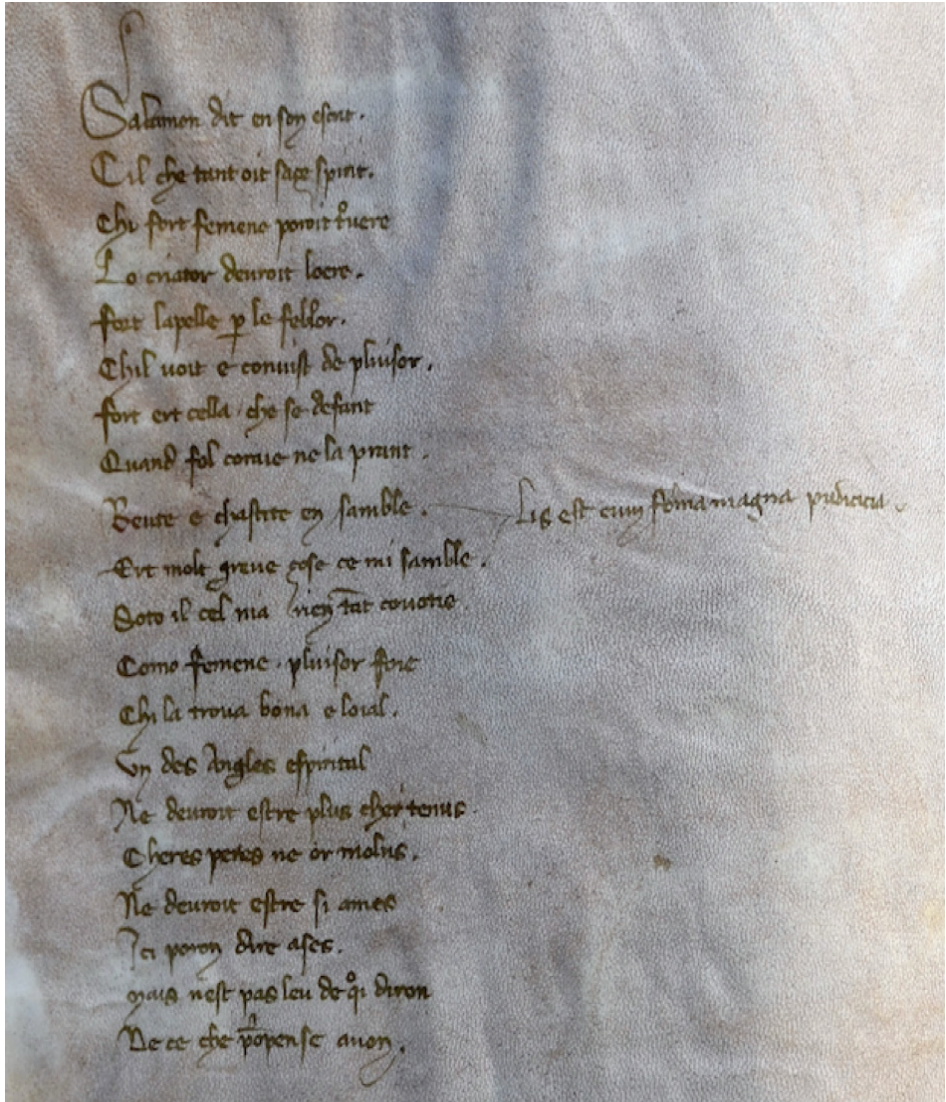 Salamon dit en son escrit.
Cil che tant oit sage spirit.
Chi fort femene poroit tͦuere
Lo criator deuroit loere.
fort lapelle ꝑ le feblor.
Chil uoit e conuist de pluisor.
fort ert cella che se defant
Quand fol coraie ne la prant.
Beute e chastite en samble. Lis est cum foma magna pudicicia.
Ert molt greue çose ce mi samble.
Soto il cel nia rien tāt couotie.
Como femene. pluisor fore
Chi la troua bona e loial.
Un des Angles espirital
Ne deuroit estre plus cher tenus.
Cheres peres ne or molus.
Ne deuroit estre si ames
Ici poron dire ases.
mais nest pas leu de qͦi diron
De ce che ꝓpense auon.